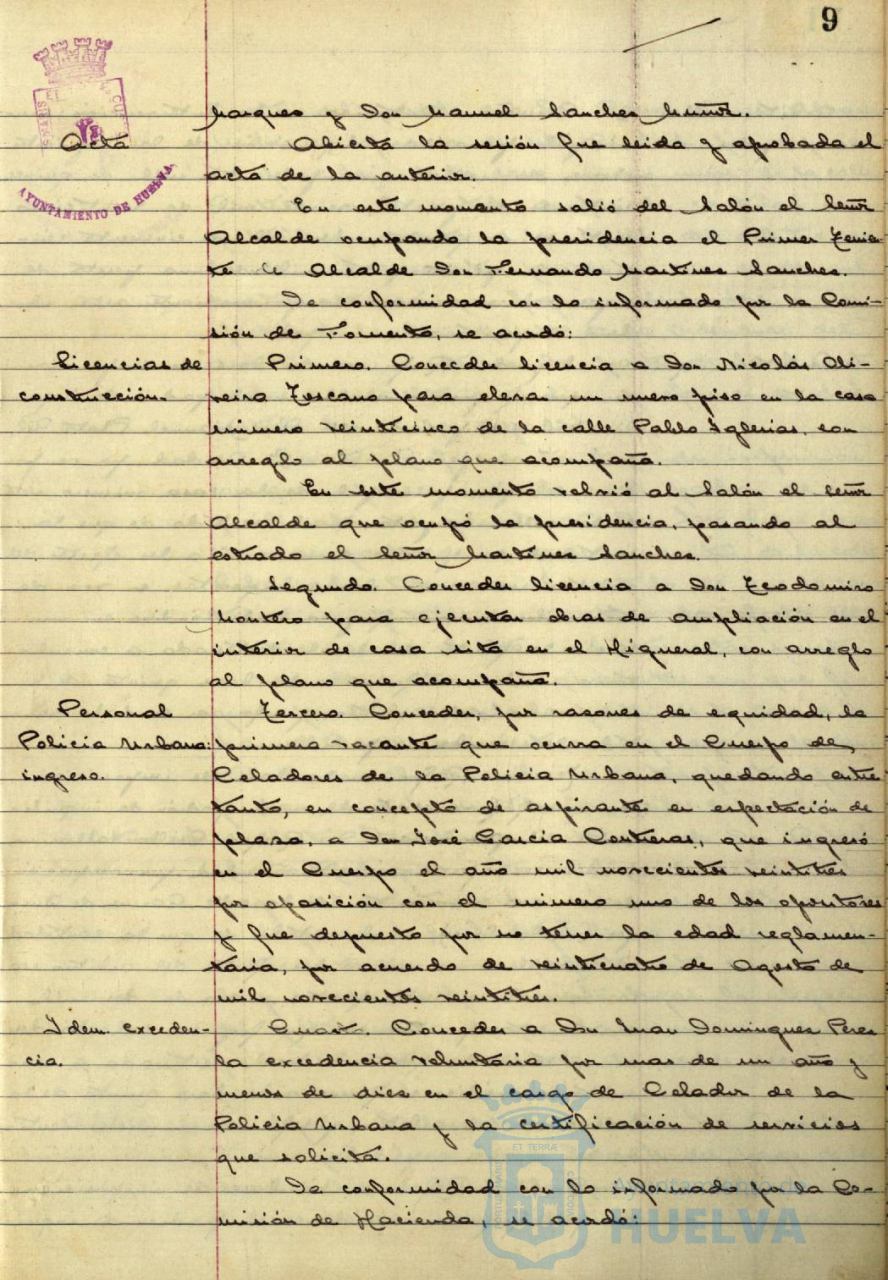 9
Marques y Don Manuel Sanches Muñoz.
Acta Abierta la sesión fue leida y aprobada el
acta de la anterior.
AYUNTAMIENTO DE HUELVA
En este momento salió del Salón el Señor
Alcalde ocupando la presidencia el Primer Tenien-
te de Alcalde Don Fernando Martines Sanches.
De conformidad con lo informado por la Comi-
sión de Fomento, se acordó:
Licencias de Primero. Conceder licencia a Don Nicolás Oli-
construcción. veira Toscano para elevar un nuevo piso en la casa
número veinticinco de la calle Pablo Iglesias, con
arreglo al plano que acompaña.
En este momento volvió al Salón el Señor
Alcalde que ocupó la presidencia, pasando al
estrado el Señor Martines Sanches.
Segundo. Conceder licencia a Don Teodomiro
Montero para ejecutar obras de ampliación en el
interior de casa sita en el Higueral, con arreglo
al plano que acompaña.
Personal Tercero. Conceder, por rasones de equidad, la
Policia Urbana: primera vacante que ocurra en el Cuerpo de
ingreso. Celadores de la Policia Urbana, quedando entre
tanto, en concepto de aspirante en espectación de
plasa, a Don José Garcia Contreras, que ingresó
en el Cuerpo el año mil novecientos veintitres
por oposición con el número uno de los opositores
y fue depuesto por no tener la edad reglamen-
taria, por acuerdo de veinticuatro de Agosto de
mil novecientos veintitres.
Idem. exceden- Cuarto. Conceder a Don Juan Domingues Peres
cia. la excedencia voluntaria por mas de un año y
menos de dies en el cargo de Celador de la
Policia Urbana y la certificación de servicios
que solicita.
De conformidad con lo informado por la Co-
misión de Hacienda, se acordó:
ET TERRÆ
HUELVA